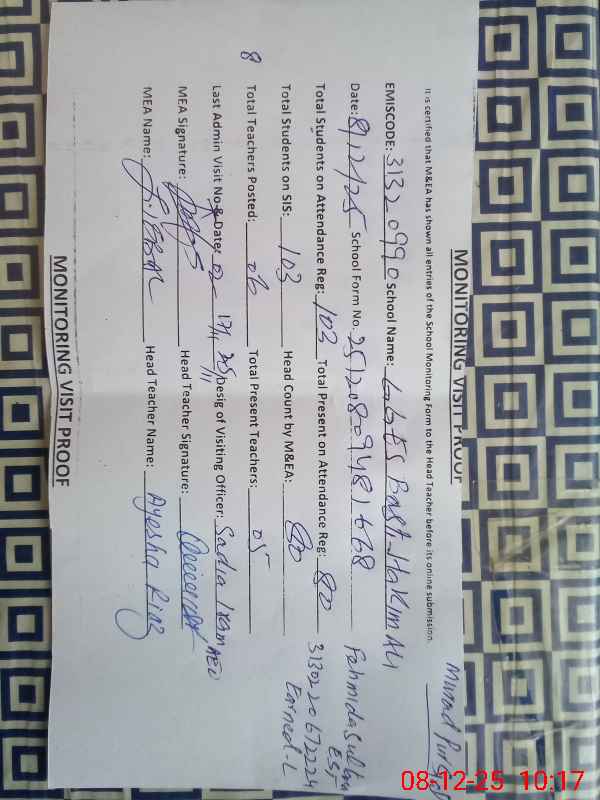 MONITORING VISIT PROOF
It is certified that M&EA has shown all entries of the School Monitoring Form to the Head Teacher before its online submission.
EMISCODE: 31320990 School Name: GGES Basti Hakim Ali
Date: 8/12/25 School Form No. 251208094821668
Total Students on Attendance Reg: 103 Total Present on Attendance Reg: 80
Total Students on SIS: 103 Head Count by M&EA: 80
Total Teachers Posted: 06 Total Present Teachers: 05
Last Admin Visit No & Date: 02 17/11/25 Desig of Visiting Officer: Sadia AEO
MEA Signature: Head Teacher Signature:
MEA Name: IQBAL Head Teacher Name: Ayesha Riaz
8
Fehmida Sultan
EST
3130220672224
Earned-L
MONITORING VISIT PROOF
08-12-25 10:17